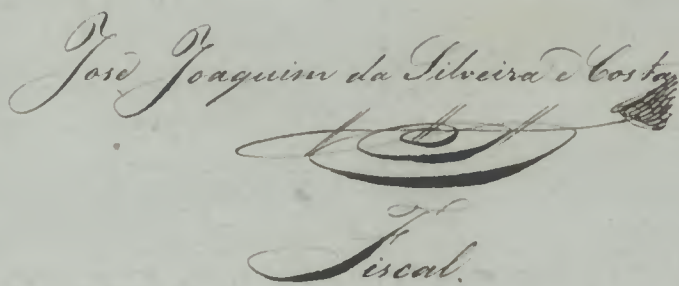 José Joaquim da Silveira e Costa
Fiscal.